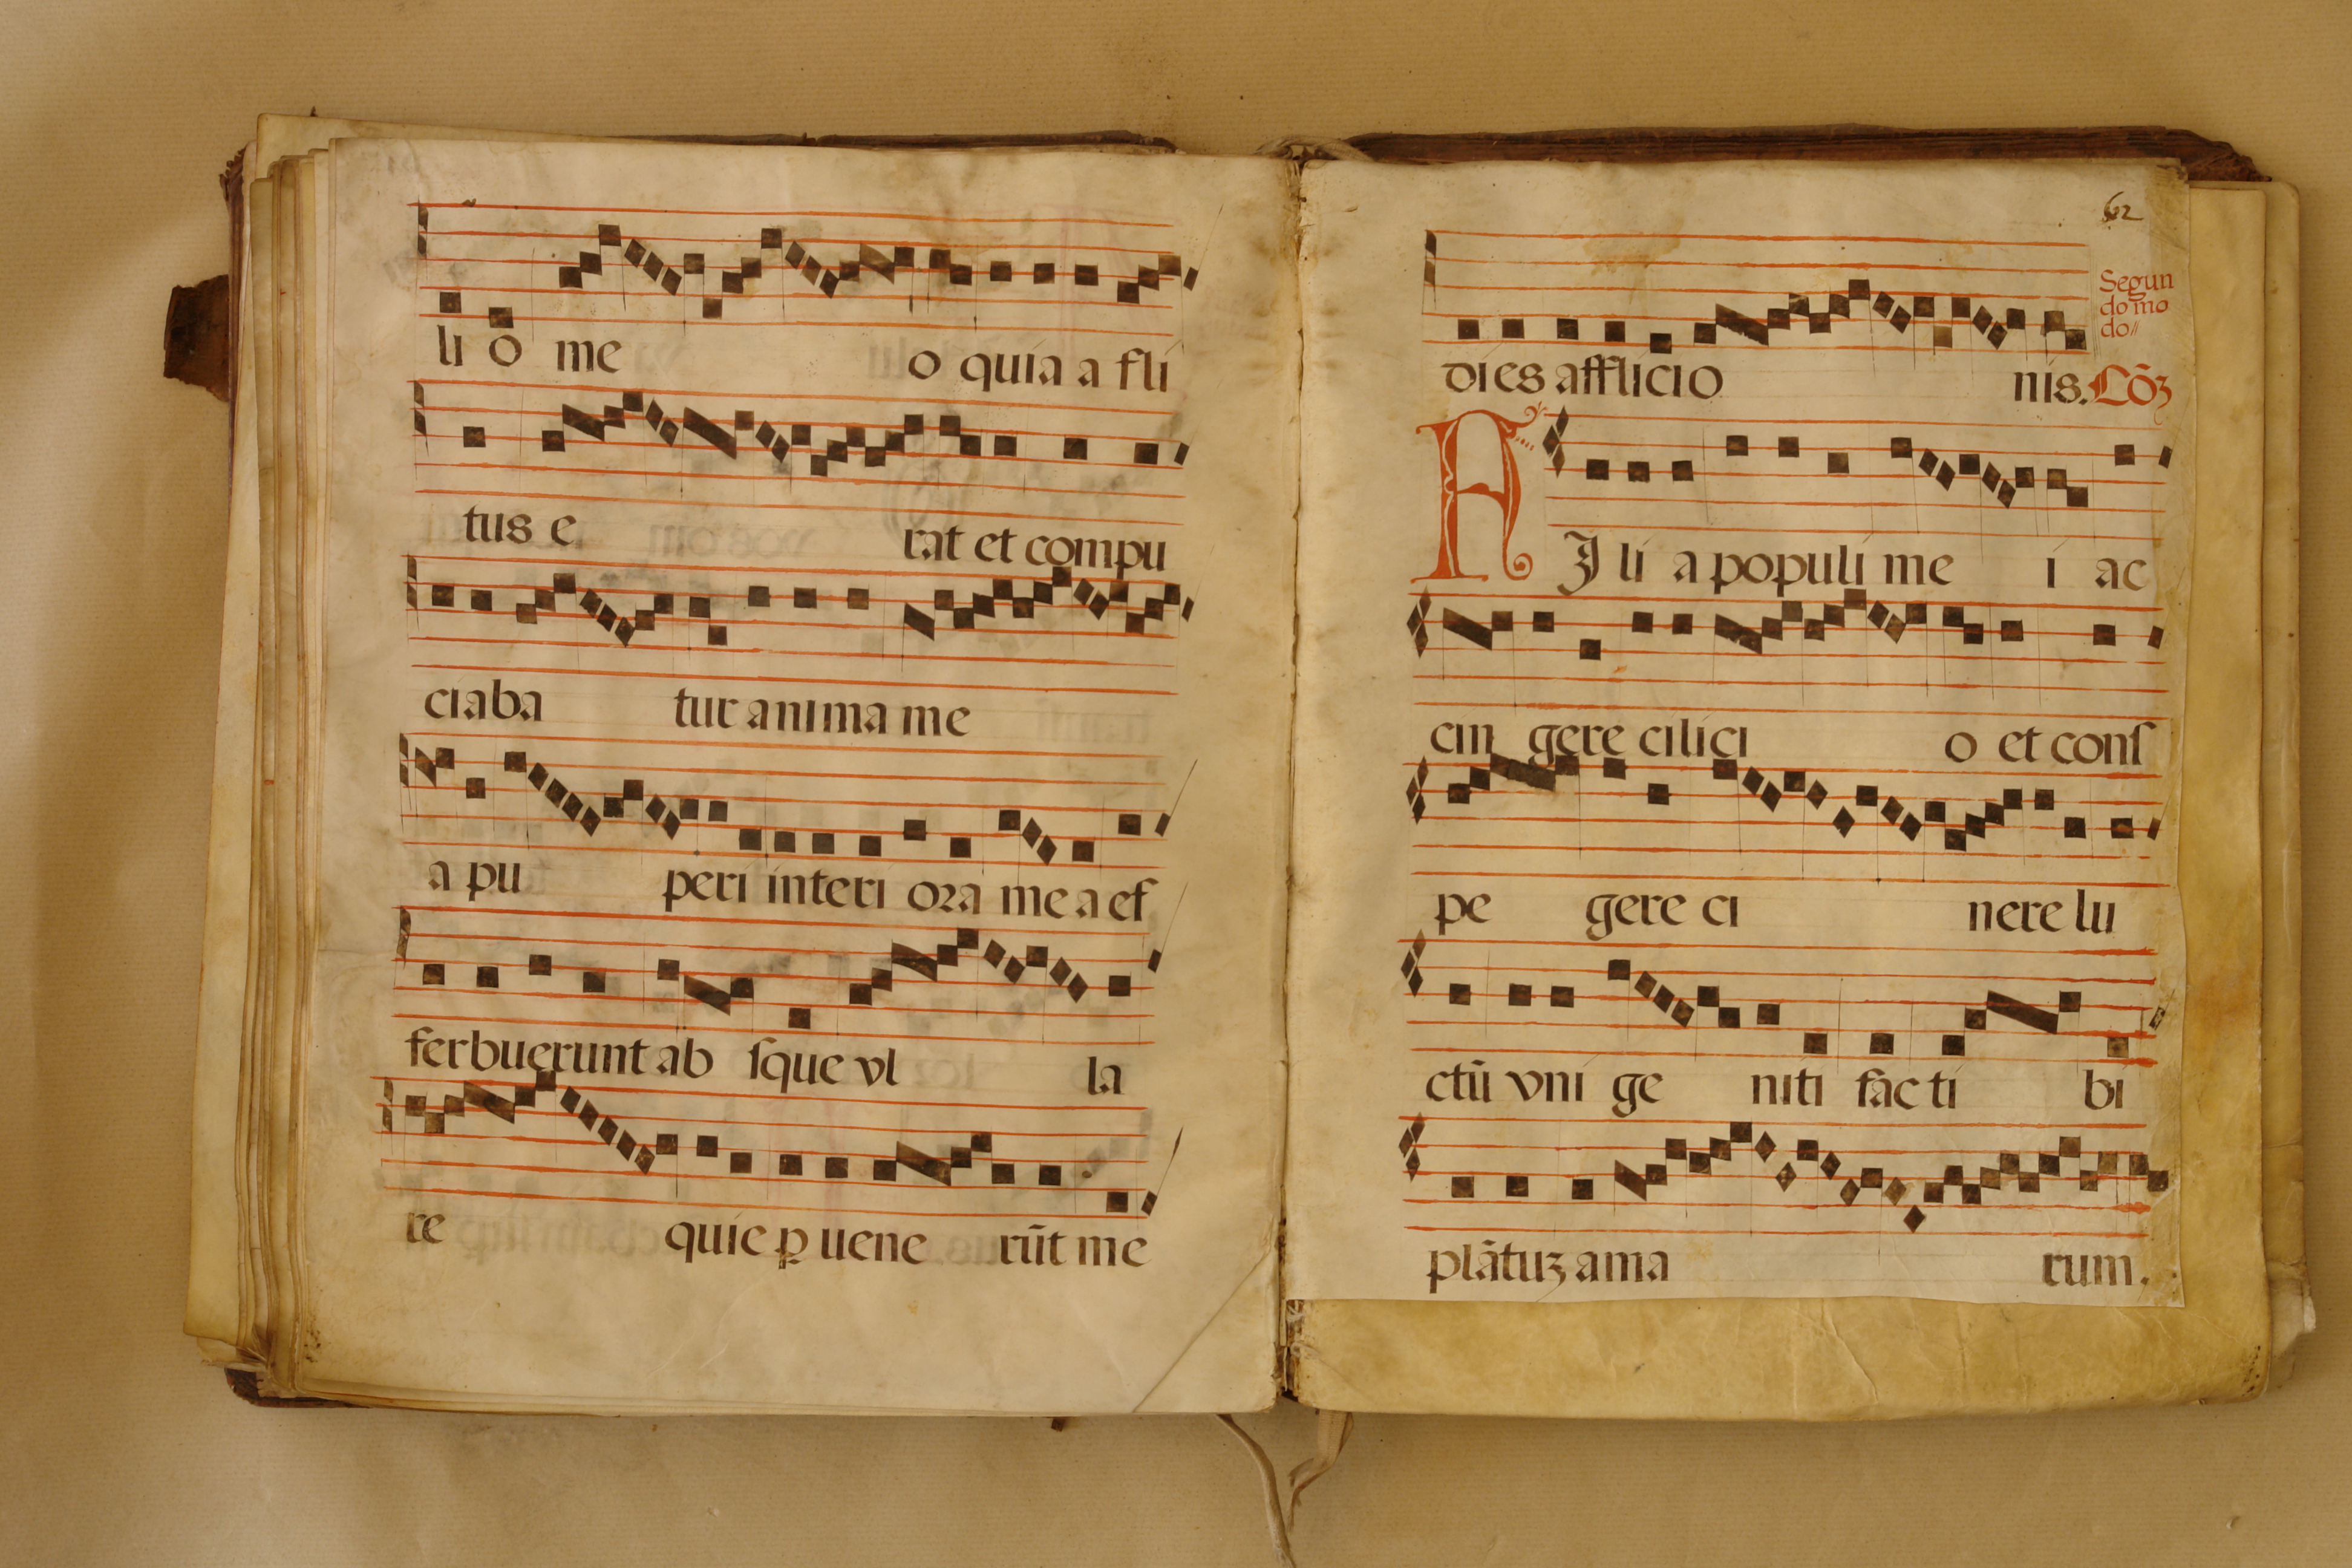 li o me o quia a fli
tus e rat et compu
ciaba tur anima me
a pu peri interi oꝛa me a ef
ferbuerunt ab ſque vl la
re quie ꝑ uene rūt me
62
dies afflicio nis. Cōꝫ
Segun
do mo
do//
FJ li a populi me i ac
cin gere cilici o et conſ
pe gere ci nere lu
ctū vni ge niti fac ti bi
plātuꝫ ama rum.